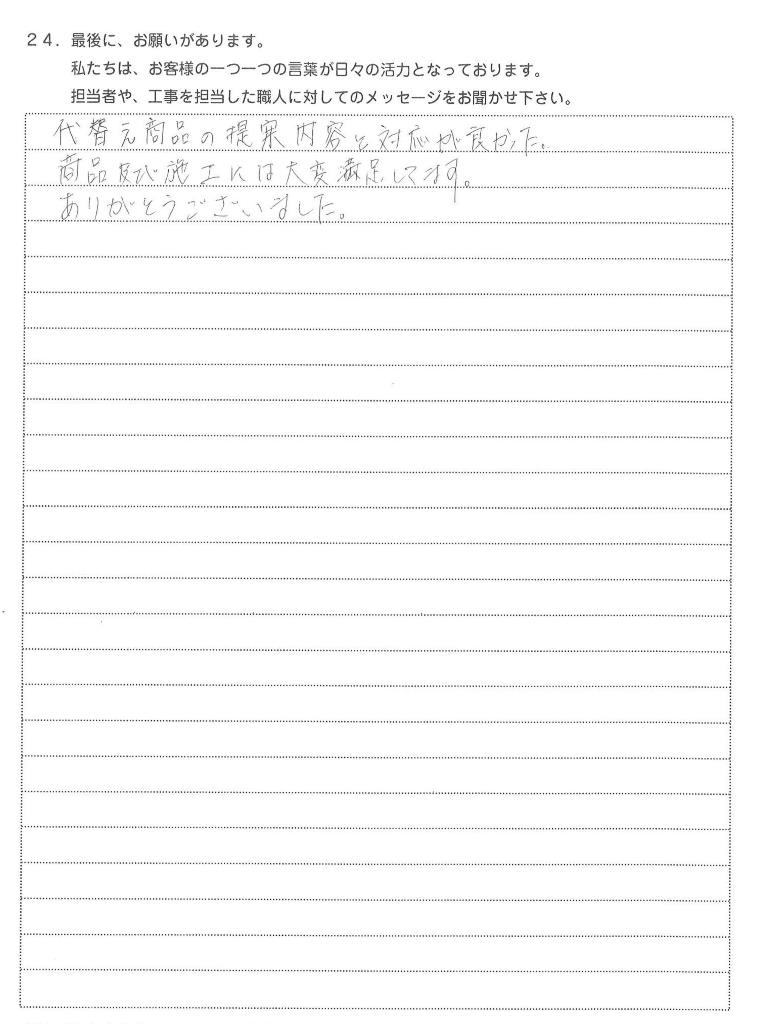 24. 最後に、お願いがあります。
私たちは、お客様の一つ一つの言葉が日々の活力となっております。
担当者や、工事を担当した職人に対してのメッセージをお聞かせ下さい。
代替え商品の提案内容と対応が良かった。
商品及び施工には大変満足してます。
ありがとうございました。